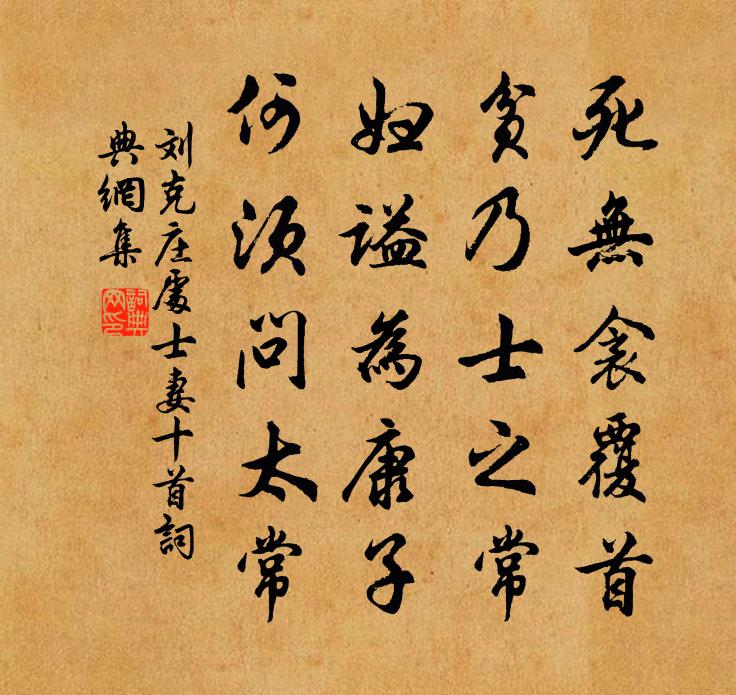 死無衾覆首
貧乃士之常
妇謚為康子
何須問太常
刘克庄處士妻十首詞
典網集
詞典網印